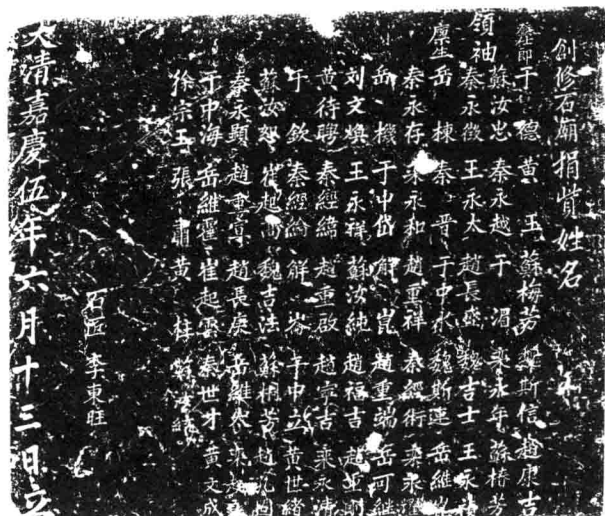 創修石廟捐貲姓名
于德 黃玉 蘇梅芳 斯信 趙康吉
領袖 蘇汝忠 秦永越 于湄 永年 蘇椿芳
秦永徵 王永太 趙長盛 魏吉士 王永
廩生 岳棟 秦晋 于中水 魏斯連 岳維
秦永存 永和 趙重祥 秦經衍 永
岳機 于中岱 解崑 趙重端 岳可維
刘文煥 王永祥 蘇汝純 趙福吉 趙
黃待聘 秦經綸 趙重啟 趙宗吉 永清
于欽 秦經綸 解岺 于中立 黃世緒
蘇汝 崔起 魏吉法 蘇桐芳 趙
秦永顕 趙重 趙長庚 岳維
于中海 岳維霍 崔起雲 秦世才 黃文成
徐宗玉 張肅 黃柱
石匠 李東旺
大清嘉慶伍年六月十三日立